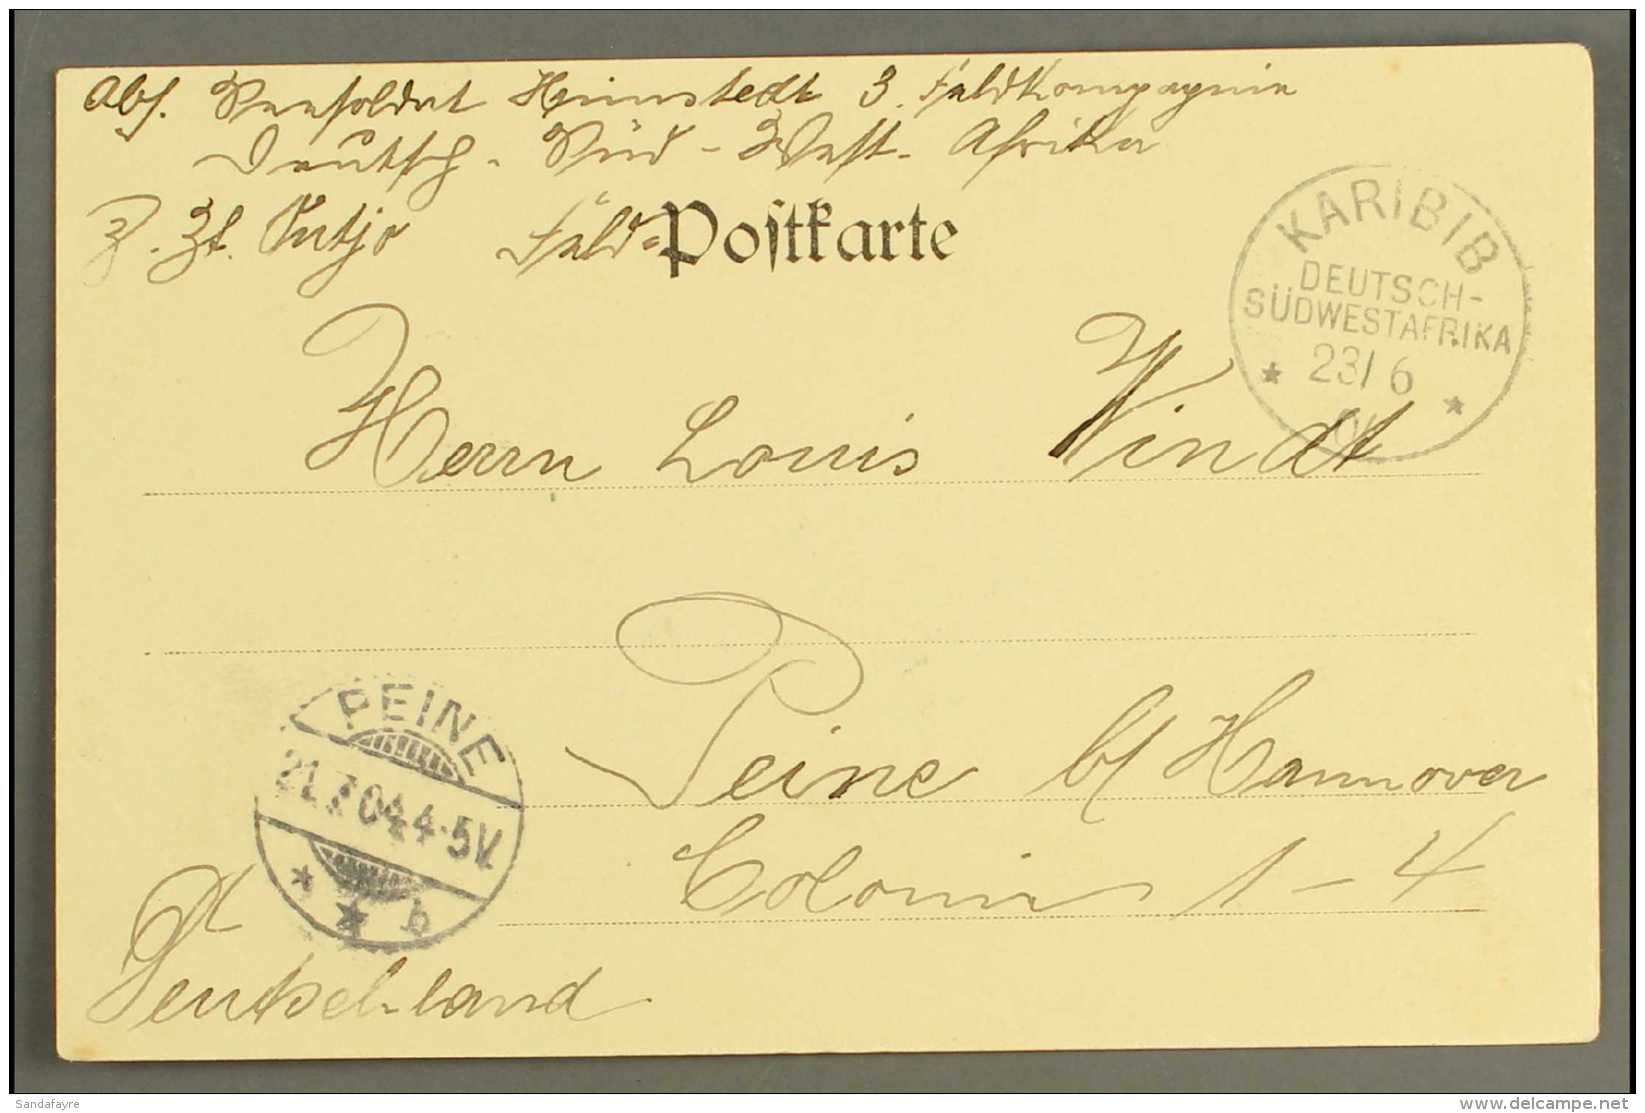 Abs. Seesoldat Heimstedt 3. Feldkompagnie
Deutsch-Süd-West-Afrika
z. Zt. Outjo Feld-Postkarte
KARIBIB
DEUTSCH-
SÜDWESTAFRIKA
23/6
Herrn Louis Windt
PEINE
21.7.04.4-5V.
* * b
Peine b/Hannover
Colonie 1-4
Deutschland
Sandafayre
delcampe.net